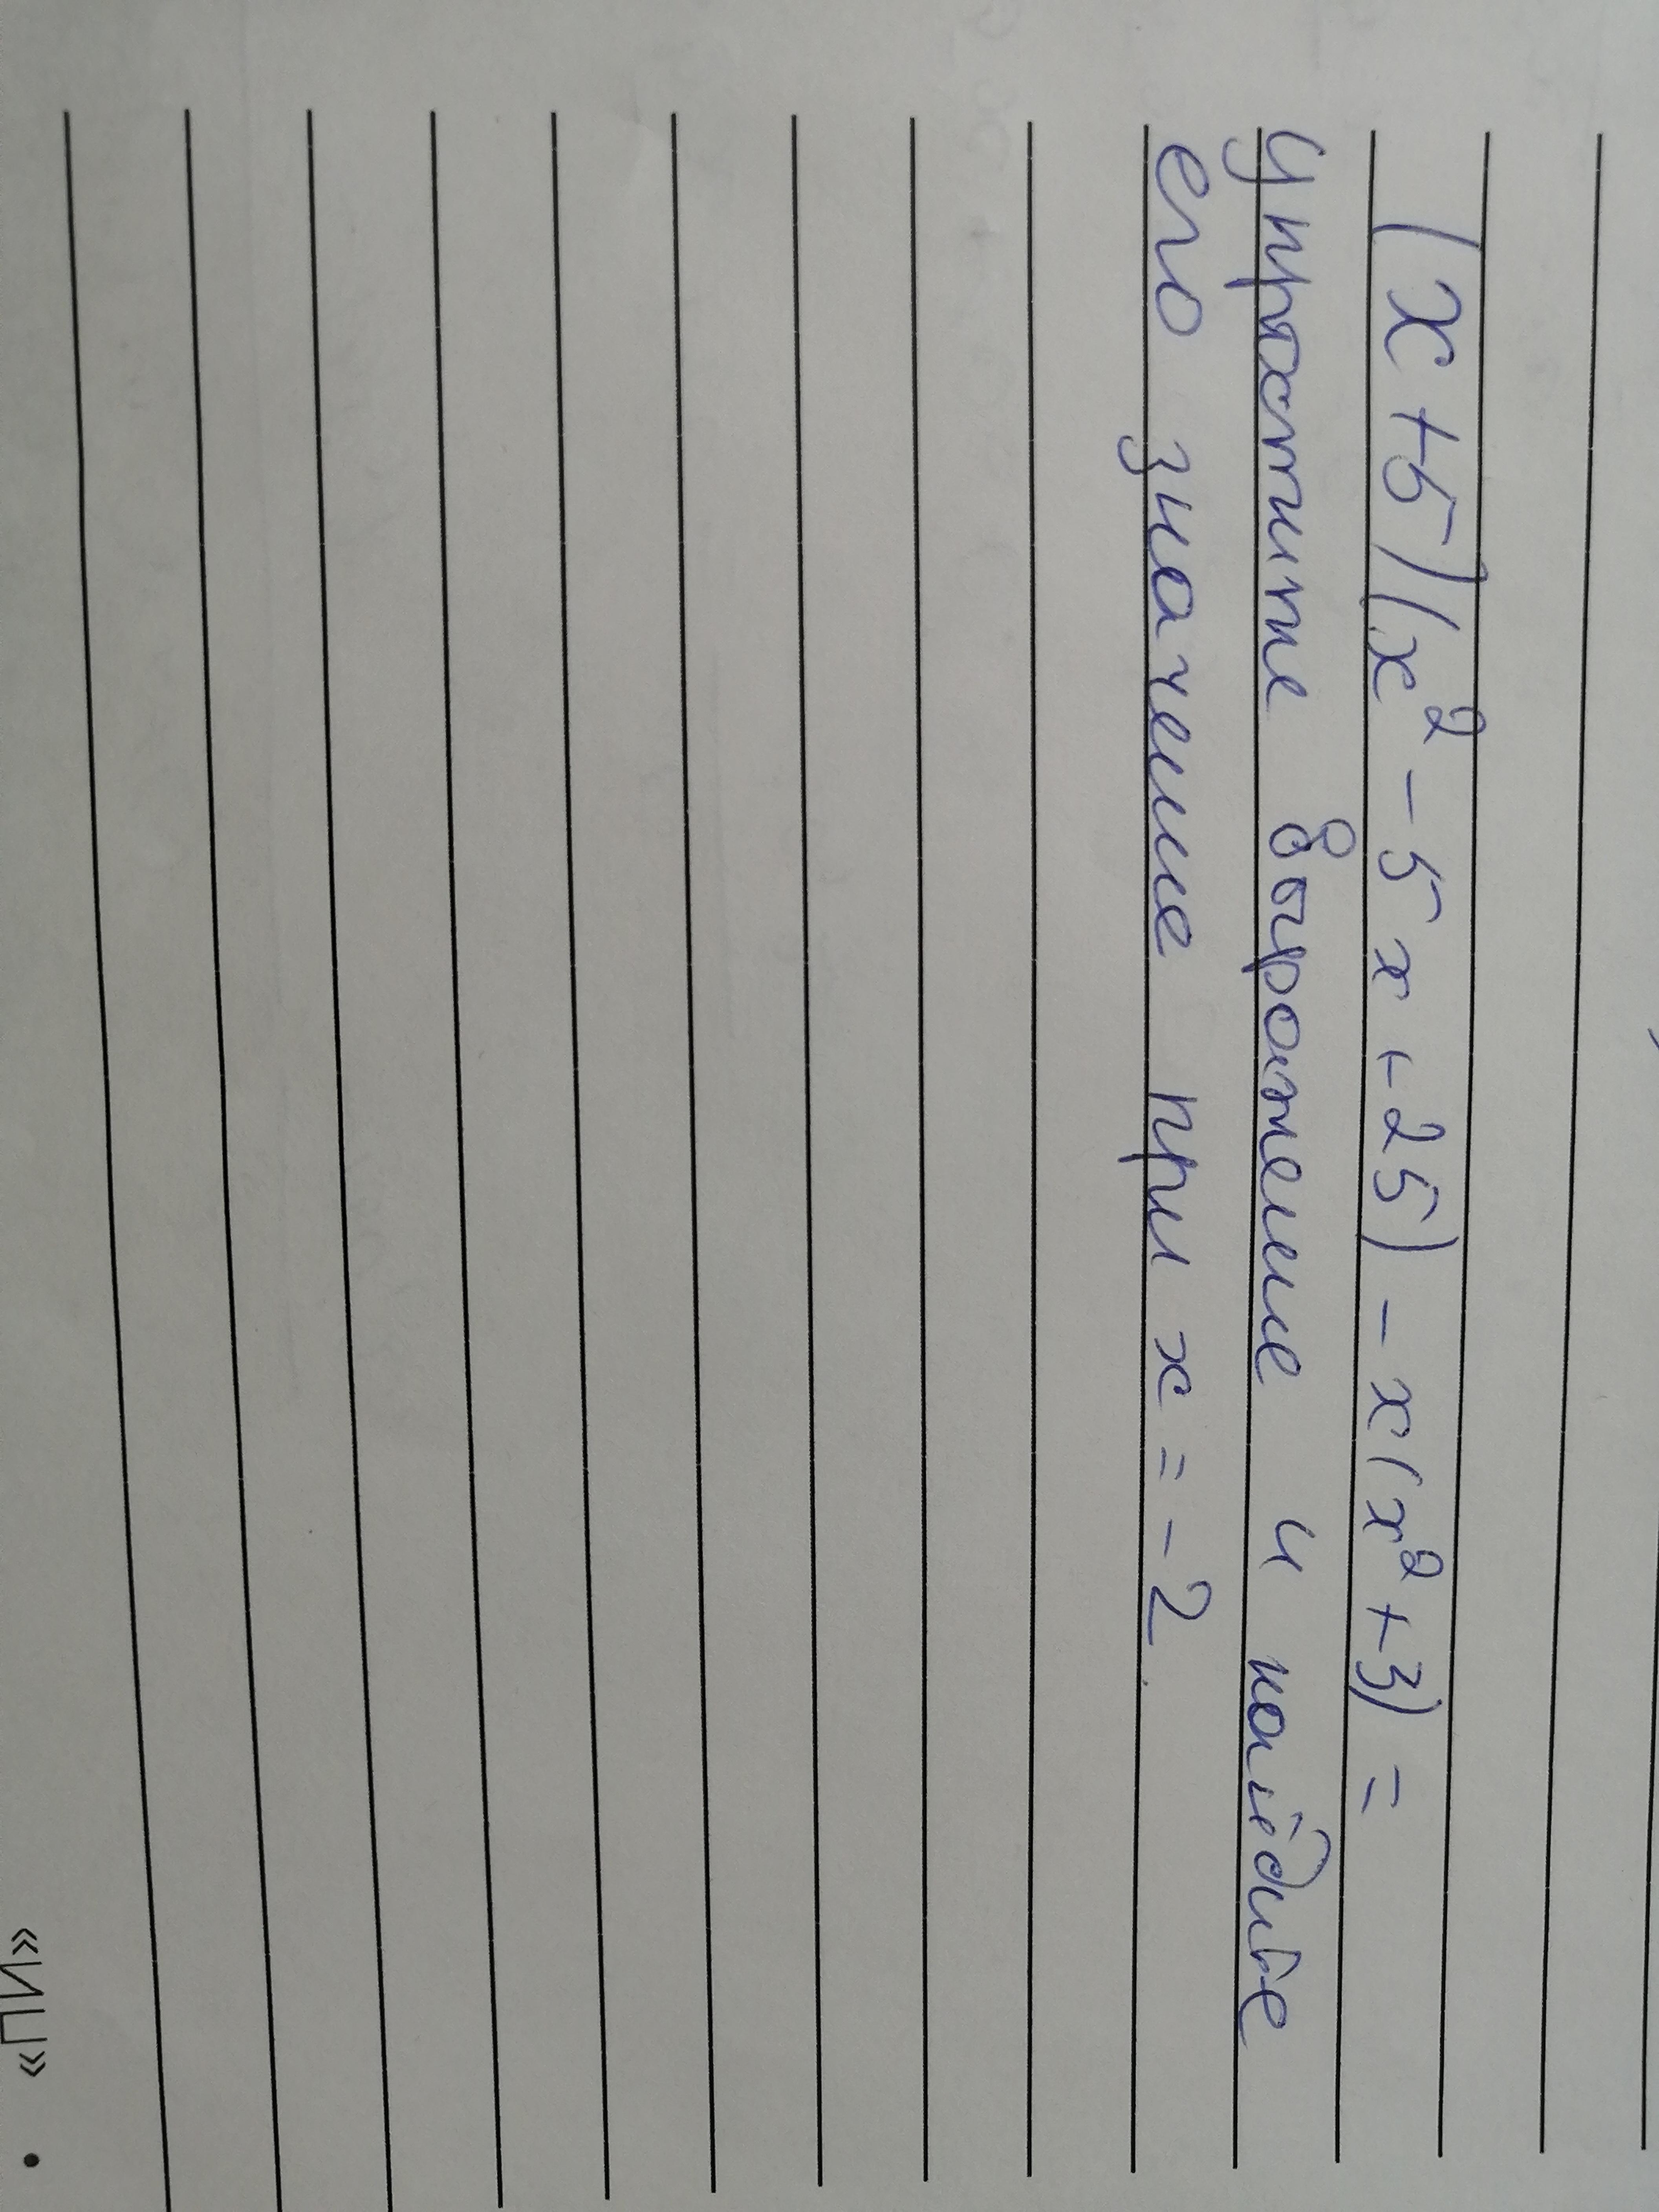 (x+5)(x²-5x+25)-x(x²+3)=
упростите выражение и найдите
его значение при x=-2.
• «ПИ»